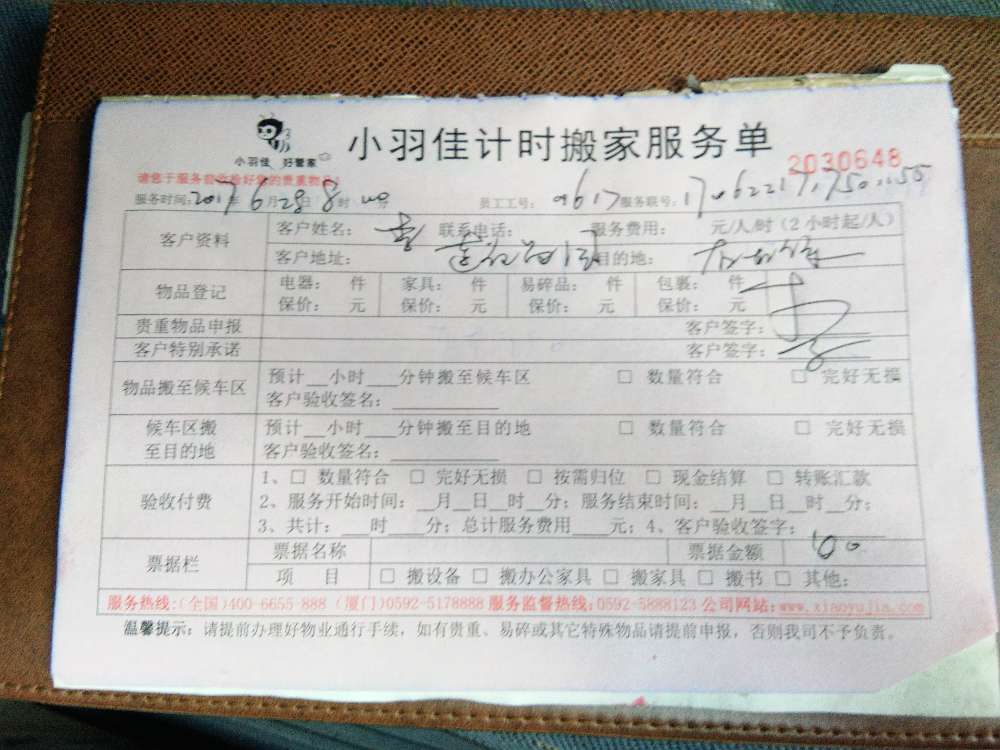 小羽佳计时搬家服务单
小羽佳 好管家
2030648
请您于服务前收验好您的贵重物品!
服务时间: 2017年6月28日8时 分 员工工号: 0617 服务联号:
客户资料 客户姓名: 联系电话: 服务费用: 元/人/时(2小时起/人)
客户地址: 目的地:
物品登记 电器: 件 家具: 件 易碎品: 件 包裹: 件
保价: 元 保价: 元 保价: 元 保价: 元
贵重物品申报 客户签字:
客户特别承诺 客户签字:
物品搬至候车区 预计__小时___分钟搬至候车区 □ 数量符合 □ 完好无损
客户验收签名:
候车区搬至目的地 预计__小时___分钟搬至目的地 □ 数量符合 □ 完好无损
客户验收签名:
验收付费 1、□ 数量符合 □ 完好无损 □ 按需归位 □ 现金结算 □ 转账汇款
2、服务开始时间:__月__日__时__分;服务结束时间:__月__日__时__分;
3、共计:___时___分;总计服务费用___元;4、客户验收签字:
票据栏 票据名称 票据金额
项 目 □ 搬设备 □ 搬办公家具 □ 搬家具 □ 搬书 □ 其他:
服务热线:(全国)400-6655-888 (厦门)0592-5178888 服务监督热线:0592-5888123 公司网站:www.xiaoyujia.com
温馨提示:请提前办理好物业通行手续,如有贵重、易碎或其它特殊物品请提前申报,否则我司不予负责。